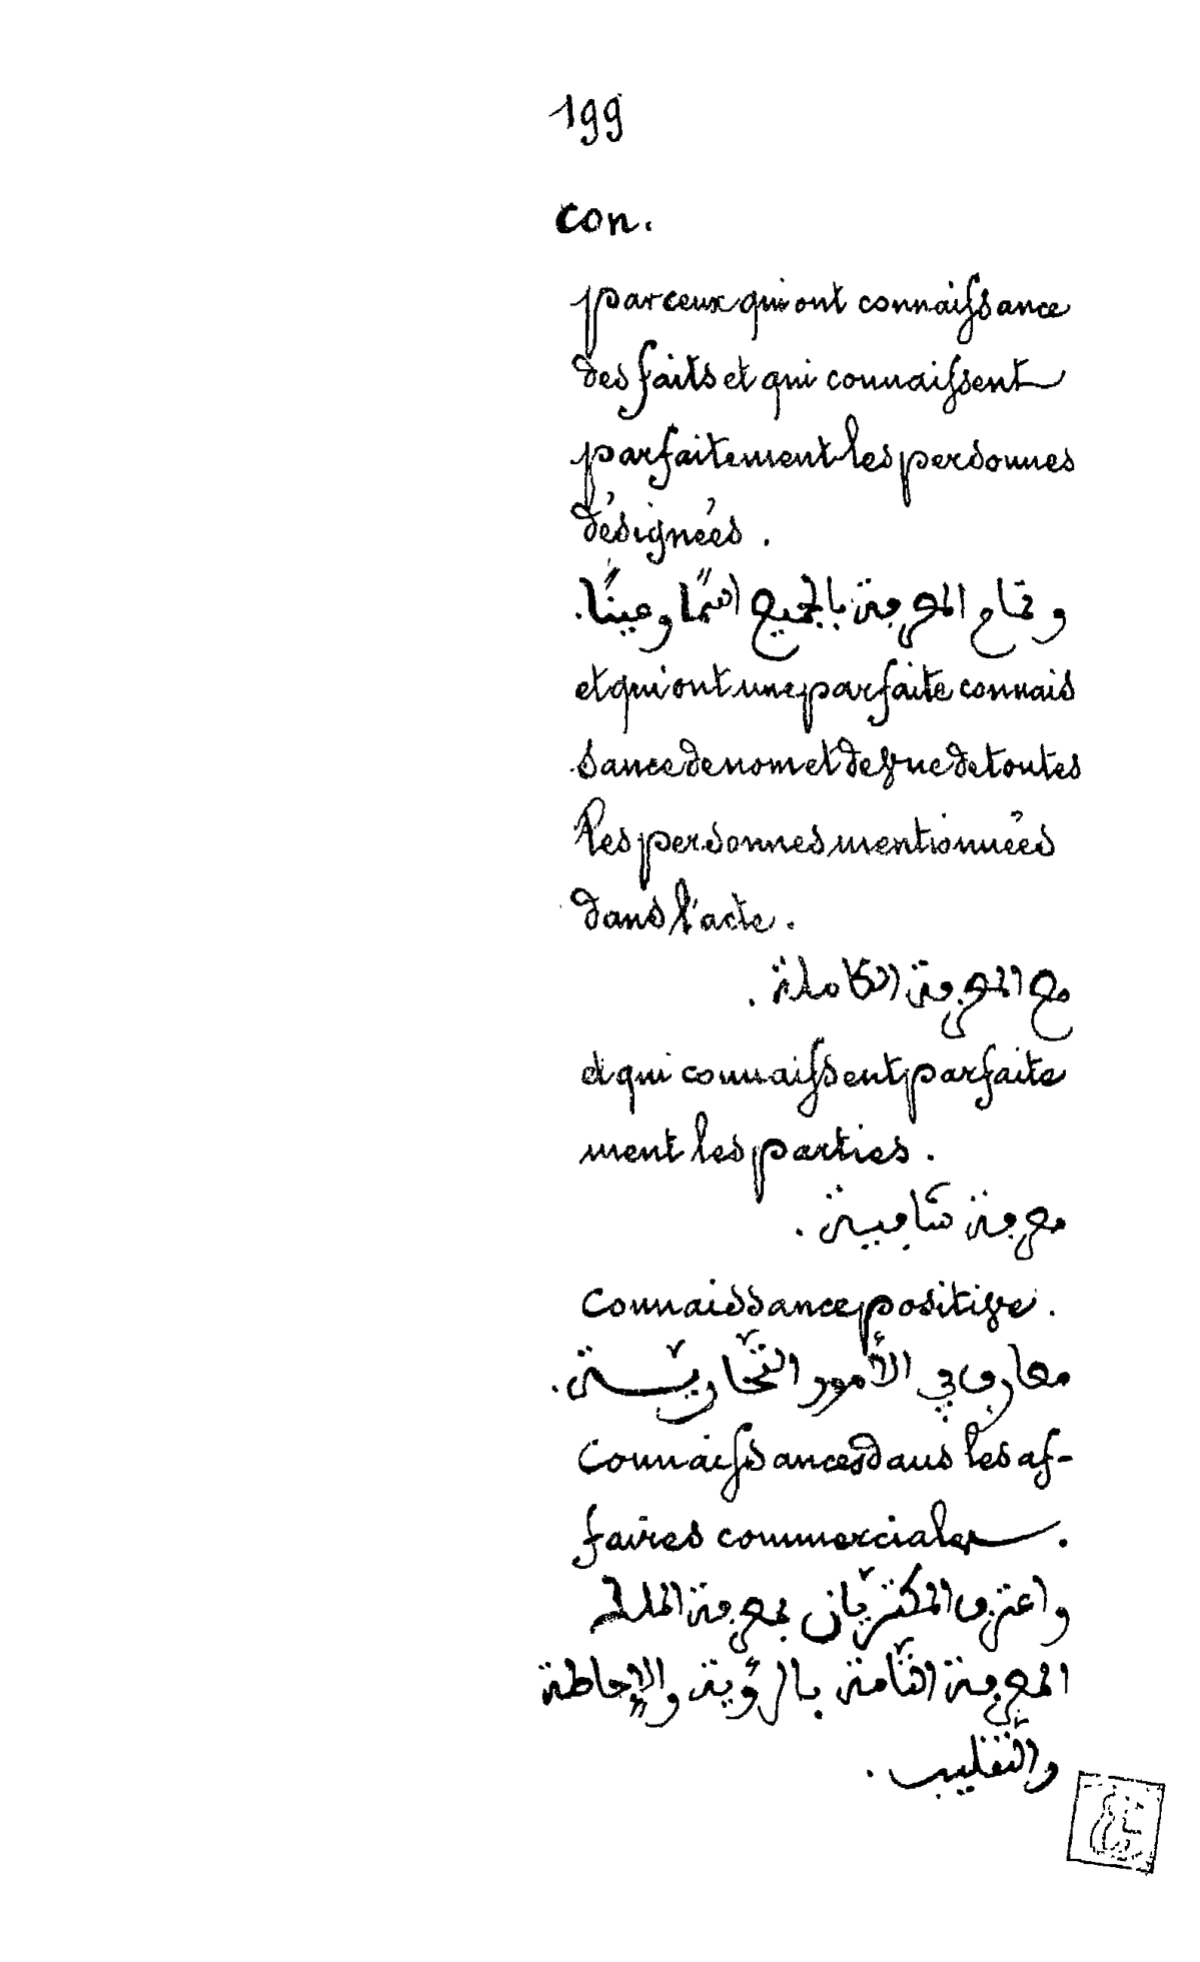 199
con.
par ceux qui ont connaissance
des faits et qui connaissent
parfaitement les personnes
désignées.
وتمام المعرفة بالجميع اسمًا وعينًا.
et qui ont une parfaite connais
sance de nom et de vue de toutes
les personnes mentionnées
dans l'acte.
مع المعرفة الكاملة.
et qui connaissent parfaite
ment les parties.
معرفة شافية.
Connaissance positive.
معارف في الأمور التّجاريّة.
Connaissances dans les af-
faires commerciales.
واعترف المكتريان بمعرفة الملك
المعرفة التّامة بالرّؤية والإحاطة
والتّقليب.